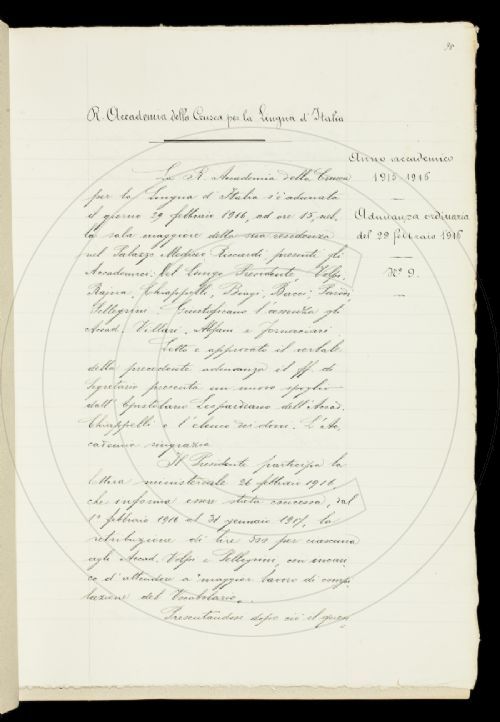 98
R. Accademia della Crusca per la Lingua d'Italia
Anno accademico
1915-1916
Adunanza ordinaria
del 29 febbraio 1916
N.° 9.
La R. Accademia della Crusca
per la Lingua d'Italia s'è adunata
il giorno 29 febbraio 1916, ad ore 15, nel-
la sala maggiore della sua residenza
nel Palazzo Mediceo Riccardi presenti gli
Accademici: Del Lungo Presidente, Volpi,
Rajna, Chiappelli, Biagi, Bacci,
Pellegrini. Giustificano l'assenza gli
Accad. Villari, Alfani e Fornaciari.
Letto e approvato il verbale
della precedente adunanza il ff. di
Segretario presenta un nuovo spoglio
dall'Epistolario Leopardiano dell'Accad.
Chiappelli e l'elenco dei doni. L'Ac-
cademia ringrazia.
Il Presidente partecipa la
ministeriale 26 febbraio 1916,
che informa essere stata concessa, dal
1° febbraio 1916 al 31 gennaio 1917, la
retribuzione di lire per ciascuno
agli Accad. Volpi e Pellegrini, con incari-
co d'attendere a maggior lavoro di compi-
lazione del Vocabolario.
Presentandosi dopo ciò il